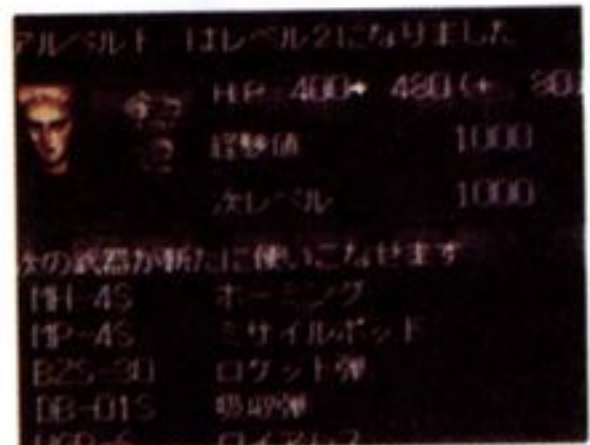 アルベルト はレベル2になりました
H.P 400→ 480(+ 80
経験値 1000
次レベル 1000
次の武器が新たに使いこなせます
MH-4S ホーミング
MP-4S ミサイルポッド
BZS-30 ロケット弾
DB-01S